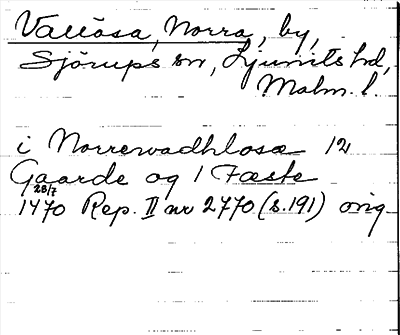 Vallösa, Norra, by,
Sjörups sn, Ljunits hd,
Malm. l.
i Norrervadhlosæ 12
Gaarde og 1 Fæste
28/7
1470 Rep. II nr 2770 (s.191) orig